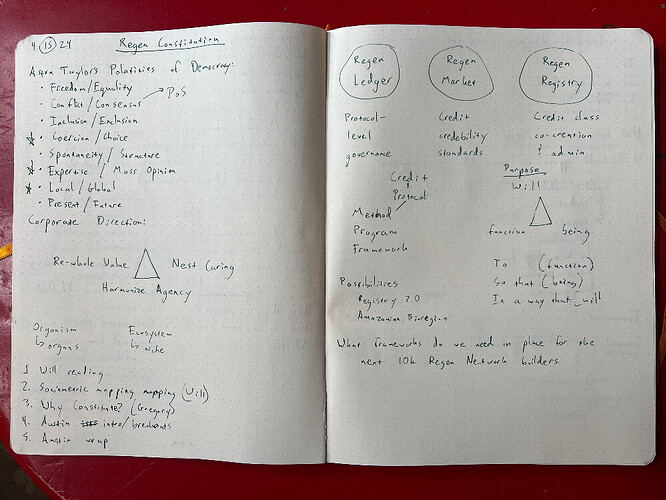 4 15 24 Regen Constitution
Astra Taylor's Polarities of Democracy:
• Freedom/Equality
• Conflict/Consensus → PoS
• Inclusion/Exclusion
• Coercion/Choice
• Spontaneity/Structure
• Expertise/Mass Opinion
• Local/Global
• Present/Future
Corporate Direction:
Re-whole Value Nest Caring
Harmonize Agency
Organism Ecosystem
↳ organs ↳ niche
1 Will reading
2. Sociometric mapping mapping (Will)
3. Why Constitute? (Gregory)
4. Austin intro/breakouts
5. Austin wrap up
Regen Ledger
Regen Market
Regen Registry
Protocol-
level
governance
Credit
credebility
standards
Credit class
co-creation
& admin
Credit
Protocol
Method
Program
Framework
Purpose
Will
function being
To (function)
So that (being)
In a way that will
Possibilities
Registry 2.0
Amazonian Bioregion
What frameworks do we need in place for the
next 10k Regen Network builders